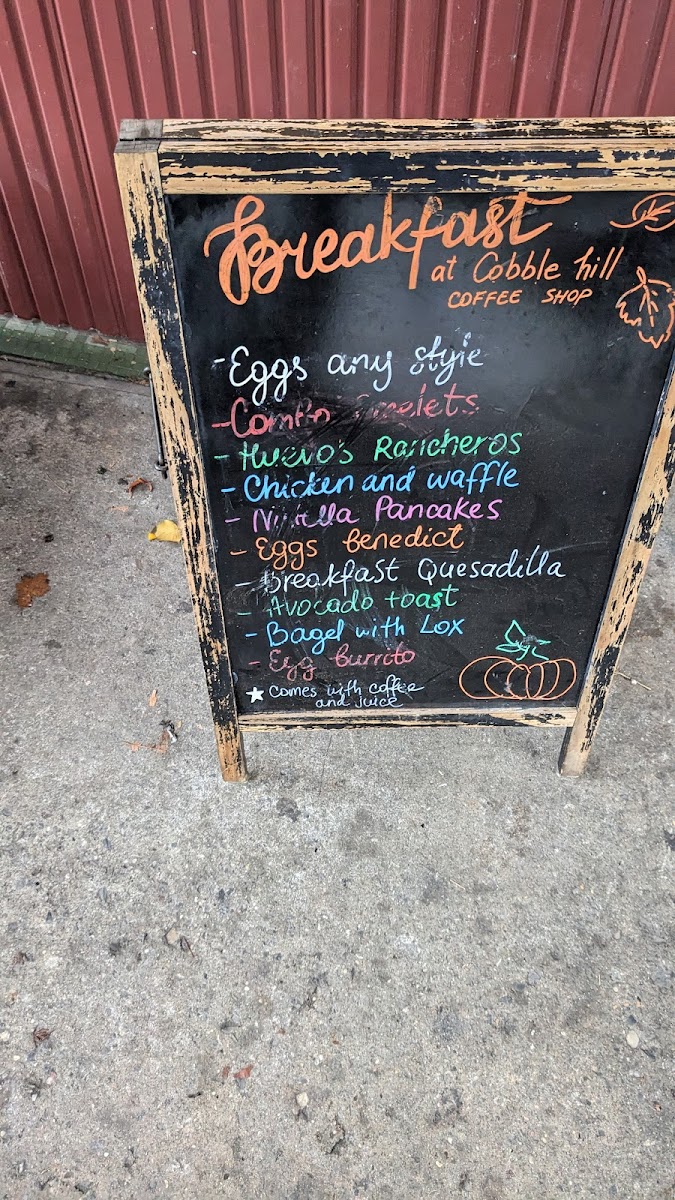 Breakfast
at Cobble hill
COFFEE SHOP
- Eggs any style
- Combo Omelets
- Huevos Rancheros
- Chicken and waffle
- Nutella Pancakes
- Eggs benedict
- Breakfast Quesadilla
- Avocado toast
- Bagel with Lox
- Egg burrito
★ Comes with coffee
and juice